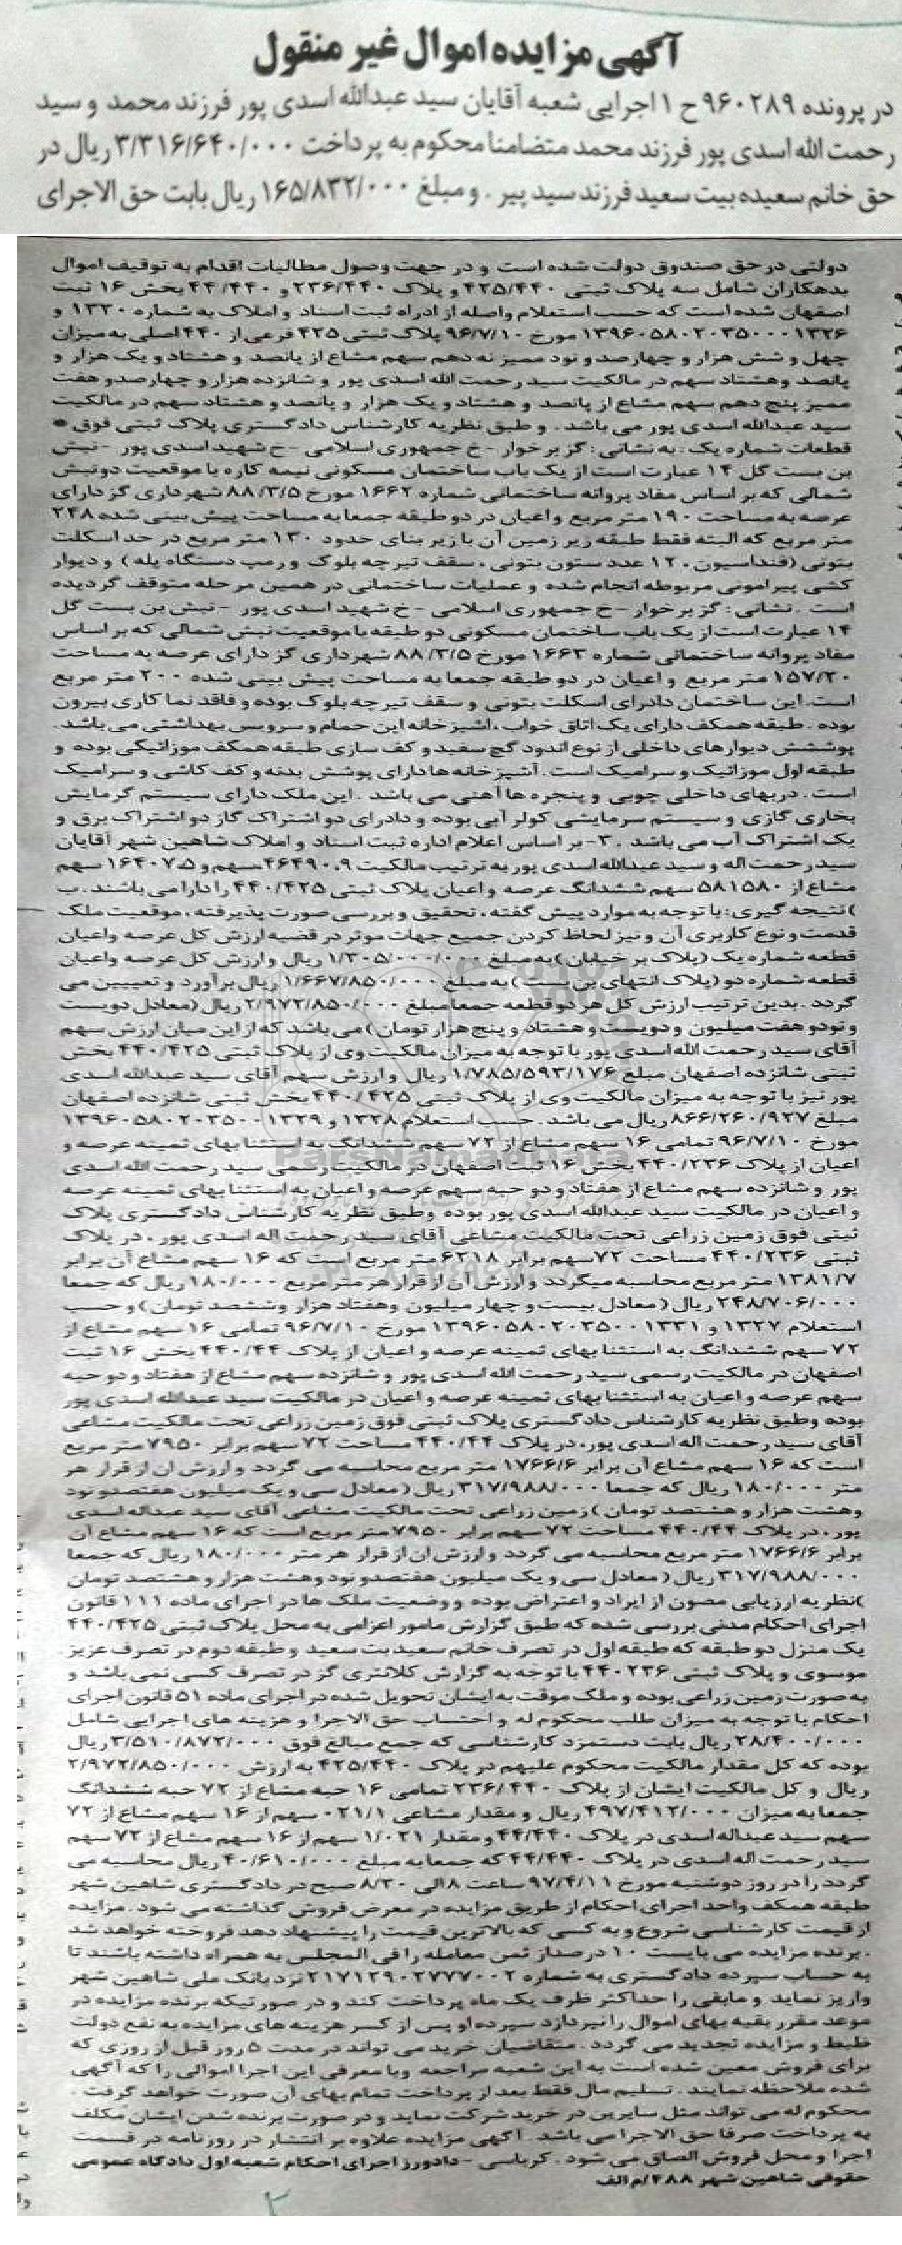 آگهی مزایده اموال غیر منقول
در پرونده ۹۶۰۲۸۹ ح ۱ اجرایی شعبه آقایان سید عبدالله اسدی پور فرزند محمد و سید
رحمت الله اسدی پور فرزند محمد متضامنا محکوم به پرداخت ۳/۳۱۶/۶۴۰/۰۰۰ ریال در
حق خانم سعیده بیت سعید فرزند سید پیر . و مبلغ ۱۶۵/۸۳۲/۰۰۰ ریال بابت حق الاجرای
دولتی در حق صندوق دولت شده است و در جهت وصول مطالبات اقدام به توقیف اموال
بدهکاران شامل سه پلاک ثبتی ۴۲۵/۴۴۰ و پلاک ۲۳۶/۴۴۰ و ۴۴/۴۴۰ بخش ۱۶ ثبت
اصفهان شده است که حسب استعلام واصله از اداره ثبت اسناد و املاک به شماره ۱۳۳۰ و
۱۳۲۶ ۱۳۹۶۰۵۸۰۲۰۳۵۰۰۰ مورخ ۹۶/۷/۱۰ پلاک ثبتی ۴۲۵ فرعی از ۴۴۰ اصلی به میزان
چهل و شش هزار و چهارصد و نود ممیز نه دهم سهم مشاع از پانصد و هشتاد و یک هزار و
پانصد و هشتاد سهم در مالکیت سید رحمت الله اسدی پور و شانزده هزار و چهارصد و هفت
ممیز پنج دهم سهم مشاع از پانصد و هشتاد و یک هزار و پانصد و هشتاد سهم در مالکیت
سید عبدالله اسدی پور می باشد . و طبق نظریه کارشناس دادگستری پلاک ثبتی فوق *
قطعات شماره یک . به نشانی : گز برخوار - خ جمهوری اسلامی - خ شهید اسدی پور - نبش
بن بست گل ۱۴ عبارت است از یک باب ساختمان مسکونی نیمه کاره با موقعیت دونبش
شمالی که بر اساس مفاد پروانه ساختمانی شماره ۱۶۶۲ مورخ ۸۸/۳/۵ شهرداری گز دارای
عرصه به مساحت ۱۹۰ متر مربع و اعیان در دو طبقه جمعا به مساحت پیش بینی شده ۲۴۸
متر مربع که البته فقط طبقه زیر زمین آن با زیر بنای حدود ۱۳۰ متر مربع در حد اسکلت
بتونی (فنداسیون ، ۱۲ عدد ستون بتونی ، سقف تیرچه بلوک و رمپ دستگاه پله ) و دیوار
کشی پیرامونی مربوطه انجام شده و عملیات ساختمانی در همین مرحله متوقف گردیده
است . نشانی : گز برخوار - خ جمهوری اسلامی - خ شهید اسدی پور - نبش بن بست گل
۱۴ عبارت است از یک باب ساختمان مسکونی دو طبقه با موقعیت نبش شمالی که بر اساس
مفاد پروانه ساختمانی شماره ۱۶۶۳ مورخ ۸۸/۳/۵ شهرداری گز دارای عرصه به مساحت
۱۵۷/۲۰ متر مربع و اعیان در دو طبقه جمعا به مساحت پیش بینی شده ۲۰۰ متر مربع
است. این ساختمان دادرای اسکلت بتونی و سقف تیرچه بلوک بوده و فاقد نما کاری بیرون
بوده . طبقه همکف دارای یک اتاق خواب ، اشپزخانه این حمام و سرویس بهداشتی می باشد.
پوششش دیوارهای داخلی از نوع اندود گچ سفید و کف سازی طبقه همکف موزائیکی بوده و
طبقه اول موزائیک و سرامیک است . آشپزخانه ها دارای پوشش بدنه و کف کاشی و سرامیک
است . دربهای داخلی چوبی و پنجره ها آهنی می باشد . این ملک دارای سیستم گرمایش
بخاری گازی و سیستم سرمایشی کولر آبی بوده و دادرای دو اشتراک گاز دو اشتراک برق و
یک اشتراک آب می باشد . ۳- بر اساس اعلام اداره ثبت اسناد و املاک شاهین شهر آقایان
سید رحمت اله و سید عبدالله اسدی پور به ترتیب مالکیت ۴۶۴۹۰.۹ سهم و ۱۶۴۰۷.۵ سهم
مشاع از ۵۸۱۵۸۰ سهم ششدانگ عرصه و اعیان پلاک ثبتی ۴۴۰/۴۲۵ را دارا می باشند . ب
)نتیجه گیری : با توجه به موارد پیش گفته ، تحقیق و بررسی صورت پذیرفته ، موقعیت ملک
قدمت و نوع کاربری آن و نیز لحاظ کردن جمیع جهات موثر در قضیه ارزش کل عرصه واعیان
قطعه شماره یک (پلاک بر خیابان ) به مبلغ ۱/۳۰۵/۰۰۰/۰۰۰ ریال و ارزش کل عرصه واعیان
قطعه شماره دو (پلاک انتهای بن بست ) به مبلغ ۱/۶۶۷/۸۵۰/۰۰۰ ریال برآورد و تعیین می
گردد . بدین ترتیب ارزش کل هر دو قطعه جمعا مبلغ ۲/۹۷۲/۸۵۰/۰۰۰ ریال (معادل دویست
و نود و هفت میلیون و دویست و هشتاد و پنج هزار تومان ) می باشد که از این میان ارزش سهم
آقای سید رحمت الله اسدی پور با توجه به میزان مالکیت وی از پلاک ثبتی ۴۴۰/۴۲۵ بخش
ثبتی شانزده اصفهان مبلغ ۱/۷۸۵/۵۹۳/۱۷۶ ریال و ارزش سهم آقای سید عبدالله اسدی
پور نیز با توجه به میزان مالکیت وی از پلاک ثبتی ۴۴۰/۴۲۵ بخش ثبتی شانزده اصفهان
مبلغ ۸۶۶/۲۶۰/۹۲۷ ریال می باشد . حسب استعلام ۱۳۲۸ و ۱۳۲۹ ۱۳۹۶۰۵۸۰۲۰۳۵۰۰
مورخ ۹۶/۷/۱۰ تمامی ۱۶ سهم مشاع از ۷۲ سهم ششدانگ به استثنا بهای ثمینه عرصه و
اعیان از پلاک ۴۴۰/۲۳۶ بخش ۱۶ ثبت اصفهان در مالکیت رسمی سید رحمت الله اسدی
پور و شانزده سهم مشاع از هفتاد و دو حبه سهم عرصه و اعیان به استثنا بهای ثمینه عرصه
و اعیان در مالکیت سید عبدالله اسدی پور بوده وطبق نظریه کارشناس دادگستری پلاک
ثبتی فوق زمین زراعی تحت مالکیت مشاعی آقای سید رحمت اله اسدی پور ، در پلاک
ثبتی ۴۴۰/۲۳۶ مساحت ۷۲ سهم برابر ۶۲۱۸ متر مربع است که ۱۶ سهم مشاع آن برابر
۱۳۸۱/۷ متر مربع محاسبه میگردد و ارزش آن از قرار هر متر مربع ۱۸۰/۰۰۰ ریال که جمعا
۲۴۸/۷۰۶/۰۰۰ ریال ( معادل بیست و چهار میلیون وهفتاد هزار وششصد تومان ) و حسب
استعلام ۱۳۲۷ و ۱۳۳۱ ۱۳۹۶۰۵۸۰۲۰۳۵۰۰ مورخ ۹۶/۷/۱۰ تمامی ۱۶ سهم مشاع از
۷۲ سهم ششدانگ به استثنا بهای ثمینه عرصه و اعیان از پلاک ۴۴۰/۴۴ بخش ۱۶ ثبت
اصفهان در مالکیت رسمی سید رحمت الله اسدی پور و شانزده سهم مشاع از هفتاد و دو حبه
سهم عرصه و اعیان به استثنا بهای ثمینه عرصه و اعیان در مالکیت سید عبدالله اسدی پور
بوده وطبق نظریه کارشناس دادگستری پلاک ثبتی فوق زمین زراعی تحت مالکیت مشاعی
آقای سید رحمت اله اسدی پور، در پلاک ۴۴۰/۴۴ مساحت ۷۲ سهم برابر ۷۹۵۰ متر مربع
است که ۱۶ سهم مشاع آن برابر ۱۷۶۶/۶ متر مربع محاسبه می گردد و ارزش ان از قرار هر
متر ۱۸۰/۰۰۰ ریال که جمعا ۳۱۷/۹۸۸/۰۰۰ ریال ( معادل سی و یک میلیون هفتصدو نود
وهشت هزار و هشتصد تومان ) زمین زراعی تحت مالکیت مشاعی آقای سید عبداله اسدی
پور ، در پلاک ۴۴۰/۴۴ مساحت ۷۲ سهم برابر ۷۹۵۰ متر مربع است که ۱۶ سهم مشاع آن
برابر ۱۷۶۶/۶ متر مربع محاسبه می گردد و ارزش ان از قرار هر متر ۱۸۰/۰۰۰ ریال که جمعا
۳۱۷/۹۸۸/۰۰۰ ریال ( معادل سی و یک میلیون هفتصدو نود وهشت هزار و هشتصد تومان
)نظریه ارزیابی مصون از ایراد و اعتراض بوده و وضعیت ملک ها در اجرای ماده ۱۱۱ قانون
اجرای احکام مدنی بررسی شده که طبق گزارش مامور اعزامی به محل پلاک ثبتی ۴۴۰/۴۲۵
یک منزل دو طبقه که طبقه اول در تصرف خانم سعید بت سعید و طبقه دوم در تصرف عزیز
موسوی و پلاک ثبتی ۴۴۰۲۳۶ با توجه به گزارش کلانتری گز در تصرف کسی نمی باشد و
به صورت زمین زراعی بوده و ملک موقت به ایشان تحویل شده در اجرای ماده ۵۱ قانون اجرای
احکام با توجه به میزان طلب محکوم له و احتساب حق الاجرا و هزینه های اجرایی شامل
۲۸/۴۰۰/۰۰۰ ریال بابت دستمزد کارشناسی که جمع مبالغ فوق ۳/۵۱۰/۸۷۲/۰۰۰ ریال
بوده که کل مقدار مالکیت محکوم علیهم در پلاک ۴۲۵/۴۴۰ به ارزش ۲/۹۷۲/۸۵۰/۰۰۰
ریال و کل مالکیت ایشان از پلاک ۲۳۶/۴۴۰ تمامی ۱۶ حبه مشاع از ۷۲ حبه ششدانگ
جمعا به میزان ۴۹۷/۴۱۲/۰۰۰ ریال و مقدار مشاعی ۰۲۱/۱ سهم از ۱۶ سهم مشاع از ۷۲
سهم سید عبداله اسدی در پلاک ۴۴/۴۴۰ و مقدار ۱/۰۲۱ سهم از ۱۶ سهم مشاع از ۷۲ سهم
سید رحمت اله اسدی در پلاک ۴۴/۴۴۰ که جمعا به مبلغ ۴۰/۶۱۰/۰۰۰ ریال محاسبه می
گردد را در روز دوشنبه مورخ ۹۷/۴/۱۱ ساعت ۸ الی ۸/۳۰ صبح در دادگستری شاهین شهر
طبقه همکف واحد اجرای احکام از طریق مزایده در معرض فروش گذاشته می شود . مزایده
از قیمت کارشناسی شروع و به کسی که بالاترین قیمت را پیشنهاد دهد فروخته خواهد شد
. برنده مزایده می بایست ۱۰ درصد از ثمن معامله را فی المجلس به همراه داشته باشند تا
به حساب سپرده دادگستری به شماره ۲۱۷۱۲۹۰۲۷۷۷۰۰۲ نزد بانک ملی شاهین شهر
واریز نماید و مابقی را حداکثر ظرف یک ماه پرداخت کند و در صورتیکه برنده مزایده در
موعد مقرر بقیه بهای اموال را نپردازد سپرده او پس از کسر هزینه های مزایده به نفع دولت
ظبط و مزایده تجدید می گردد . متقاضیان خرید می تواند در مدت ۵ روز قبل از روزی که
برای فروش معین شده است به این شعبه مراجعه وبا معرفی این اجرا اموالی را که آگهی
شده ملاحظه نمایند . تسلیم مال فقط بعد از پرداخت تمام بهای آن صورت خواهد گرفت .
محکوم له می تواند مثل سایرین در خرید شرکت نماید و در صورت برنده شدن ایشان مکلف
به پرداخت صرفا حق الاجرا می باشد . آگهی مزایده علاوه بر انتشار در روزنامه در قسمت
اجرا و محل فروش الصاق می شود . کرباسی - دادورز اجرای احکام شعبه اول دادگاه عمومی
حقوقی شاهین شهر ۴۸۸/م الف